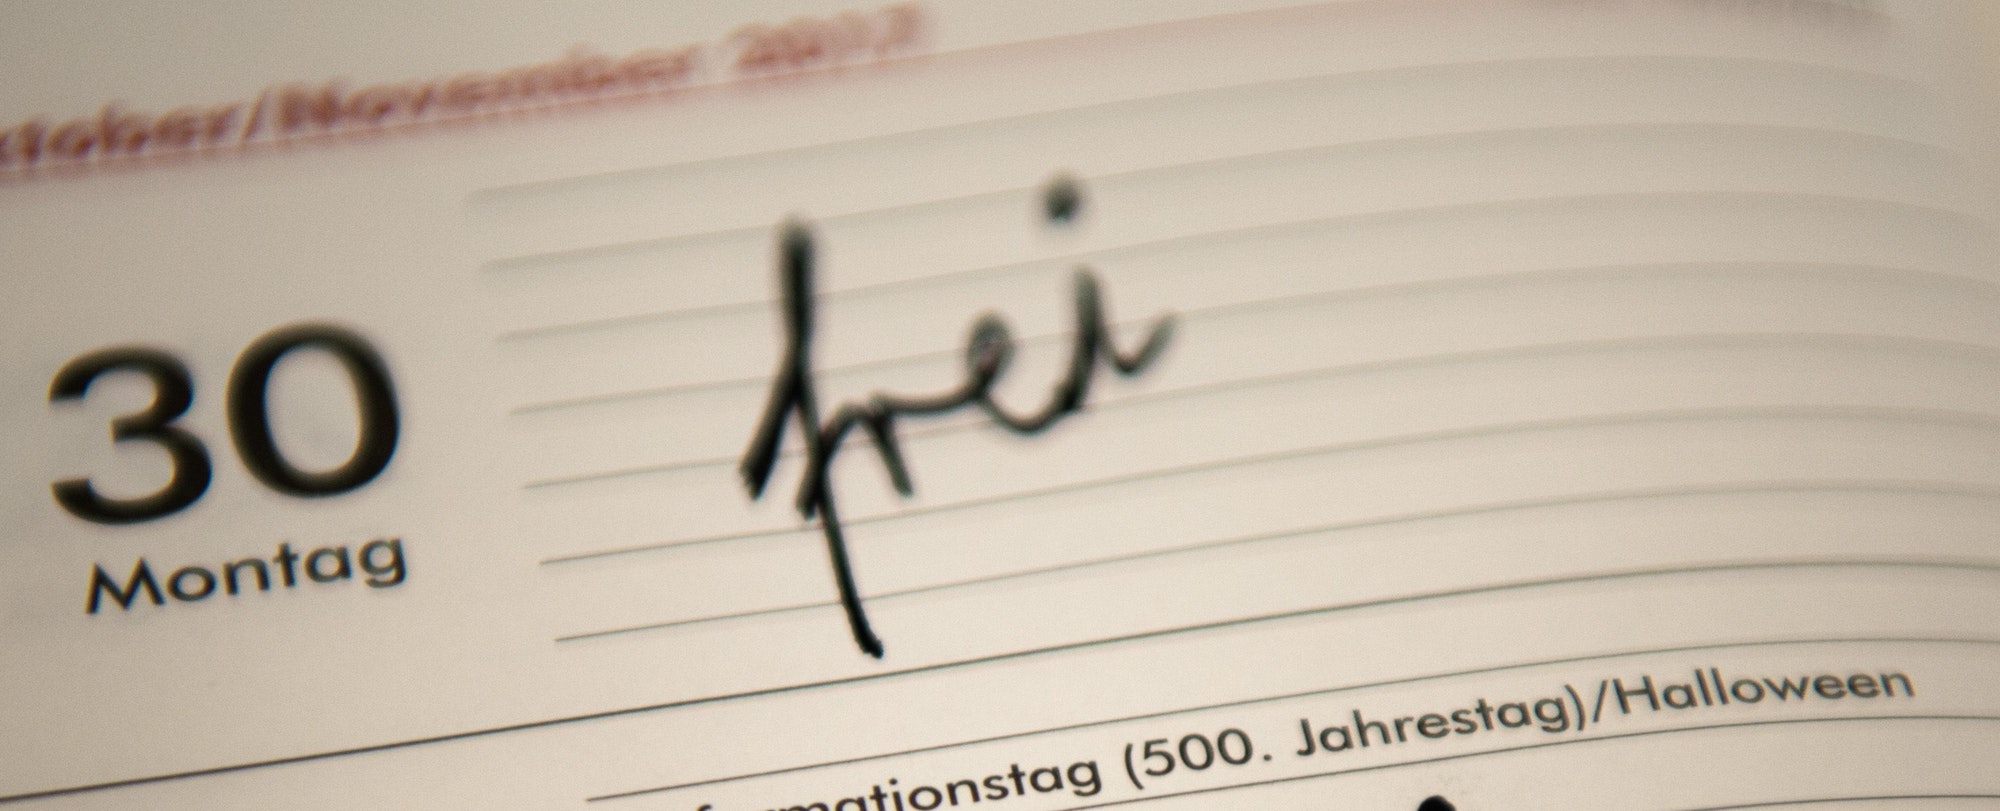 ktober/November 2017
frei
30
Montag
formationstag (500. Jahrestag)/Halloween